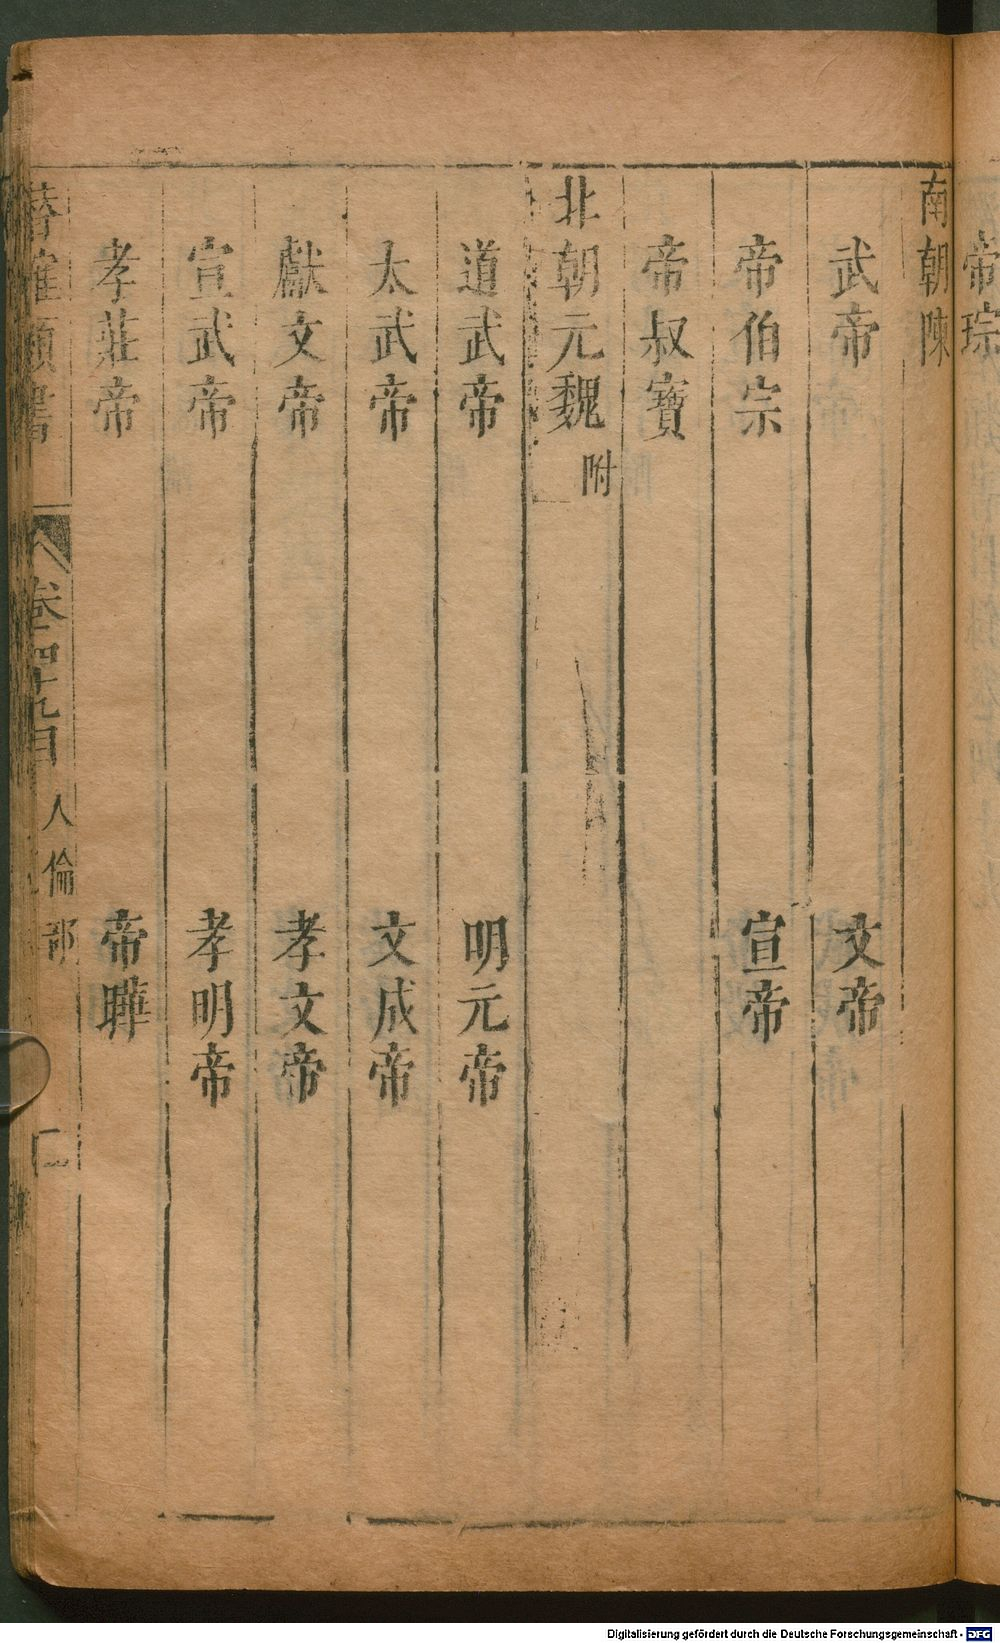 帝琮
南朝陳
武帝 文帝
帝伯宗 宣帝
帝叔寶
北朝元魏附
道武帝 明元帝
太武帝 文成帝
獻文帝 孝文帝
宣武帝 孝明帝
孝莊帝 帝曄
類書 卷一四十九目 人倫部 二
Digitalisierung gefördert durch die Deutsche Forschungsgemeinschaft - DFG